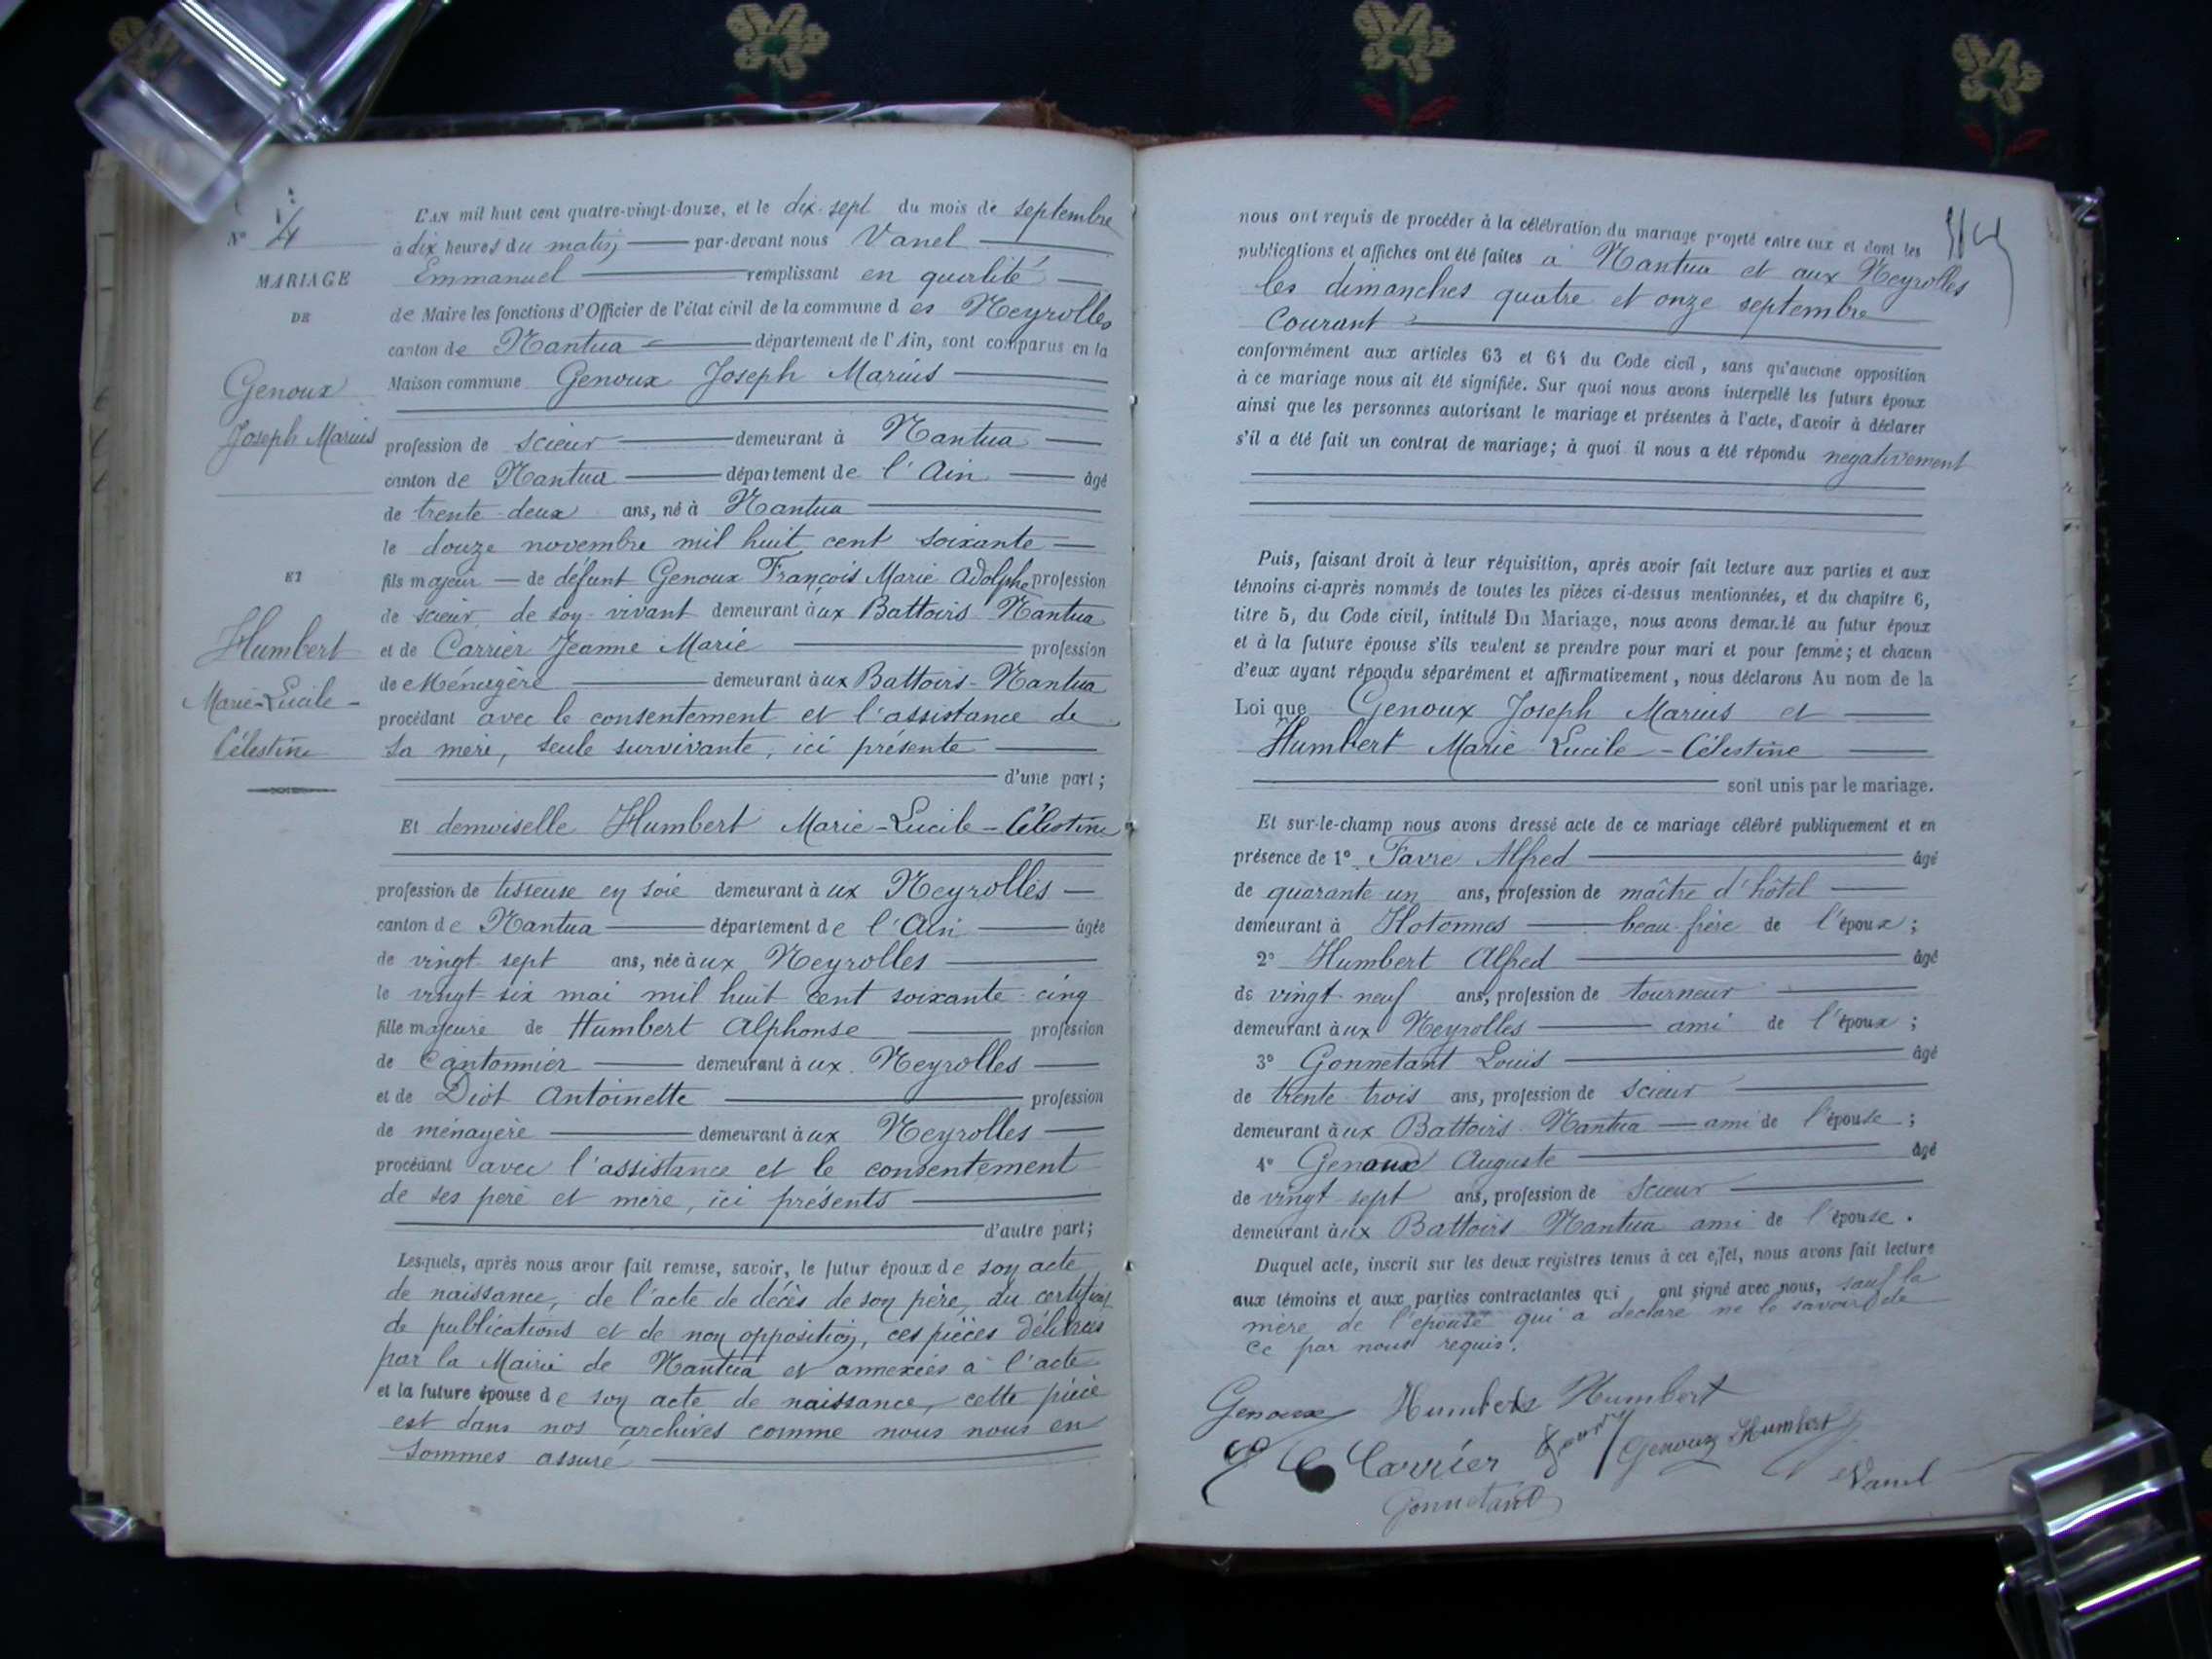 N° 4
MARIAGE
DE
Genoux
Joseph Marius
ET
Humbert
Marie-Lucile-
Célestine
L'AN mil huit cent quatre-vingt-douze, et le dix-sept du mois de septembre
à dix heures du matin par-devant nous Vanel
Emmanuel remplissant en qualité
de Maire les fonctions d'Officier de l'état civil de la commune des Neyrolles
canton de Nantua département de l'Ain, sont comparus en la
Maison commune Genoux Joseph Marius
profession de scieur demeurant à Nantua
canton de Nantua département de l'Ain âgé
de trente-deux ans, né à Nantua
le douze novembre mil huit cent soixante
fils majeur de défunt Genoux François Marie Adolphe profession
de scieur de son vivant demeurant aux Battoirs Nantua
et de Carrier Jeanne Marie profession
de Ménagère demeurant aux Battoirs-Nantua
procédant avec le consentement et l'assistance de
sa mère, seule survivante, ici présente
d'une part;
Et demoiselle Humbert Marie-Lucile-Célestine
profession de tisseuse en soie demeurant aux Neyrolles
canton de Nantua département de l'Ain âgée
de vingt-sept ans, née aux Neyrolles
le vingt-six mai mil huit cent soixante-cinq
fille majeure de Humbert Alphonse profession
de Cantonnier demeurant aux Neyrolles
et de Diot Antoinette profession
de ménagère demeurant aux Neyrolles
procédant avec l'assistance et le consentement
de ses père et mère, ici présents
d'autre part;
Lesquels, après nous avoir fait remise, savoir, le futur époux de son acte
de naissance, de l'acte de décès de son père, du certificat
de publications et de non opposition, ces pièces délivrées
par la Mairie de Nantua et annexées à l'acte
et la future épouse de son acte de naissance, cette pièce
est dans nos archives comme nous nous en
sommes assuré
nous ont requis de procéder à la célébration du mariage projeté entre eux et dont les
publications et affiches ont été faites à Nantua et aux Neyrolles
les dimanches quatre et onze septembre
Courant
conformément aux articles 63 et 64 du Code civil, sans qu'aucune opposition
à ce mariage nous ait été signifiée. Sur quoi nous avons interpellé les futurs époux
ainsi que les personnes autorisant le mariage et présentes à l'acte, d'avoir à déclarer
s'il a été fait un contrat de mariage; à quoi il nous a été répondu negativement
Puis, faisant droit à leur réquisition, après avoir fait lecture aux parties et aux
témoins ci-après nommés de toutes les pièces ci-dessus mentionnées, et du chapitre 6,
titre 5, du Code civil, intitulé Du Mariage, nous avons demandé au futur époux
et à la future épouse s'ils veulent se prendre pour mari et pour femme; et chacun
d'eux ayant répondu séparément et affirmativement, nous déclarons Au nom de la
Loi que Genoux Joseph Marius et
Humbert Marie Lucile-Célestine
sont unis par le mariage.
Et sur-le-champ nous avons dressé acte de ce mariage célébré publiquement et en
présence de 1° Favre Alfred âgé
de quarante un ans, profession de maître d'hôtel
demeurant à Hotonnes beau-frère de l'époux;
2° Humbert Alfred âgé
de vingt-neuf ans, profession de tourneur
demeurant aux Neyrolles ami de l'époux;
3° Gonnetant Louis âgé
de trente-trois ans, profession de scieur
demeurant aux Battoirs Nantua ami de l'épouse;
4° Genoux Auguste âgé
de vingt-sept ans, profession de scieur
demeurant aux Battoirs Nantua ami de l'épouse.
Duquel acte, inscrit sur les deux registres tenus à cet effet, nous avons fait lecture
aux témoins et aux parties contractantes qui ont signé avec nous, sauf la
mère de l'épouse qui a déclaré ne le savoir de
ce par nous requis.
Genoux Humbert Humbert
Carrier Genoux Humbert
Vanel
Gonnetant